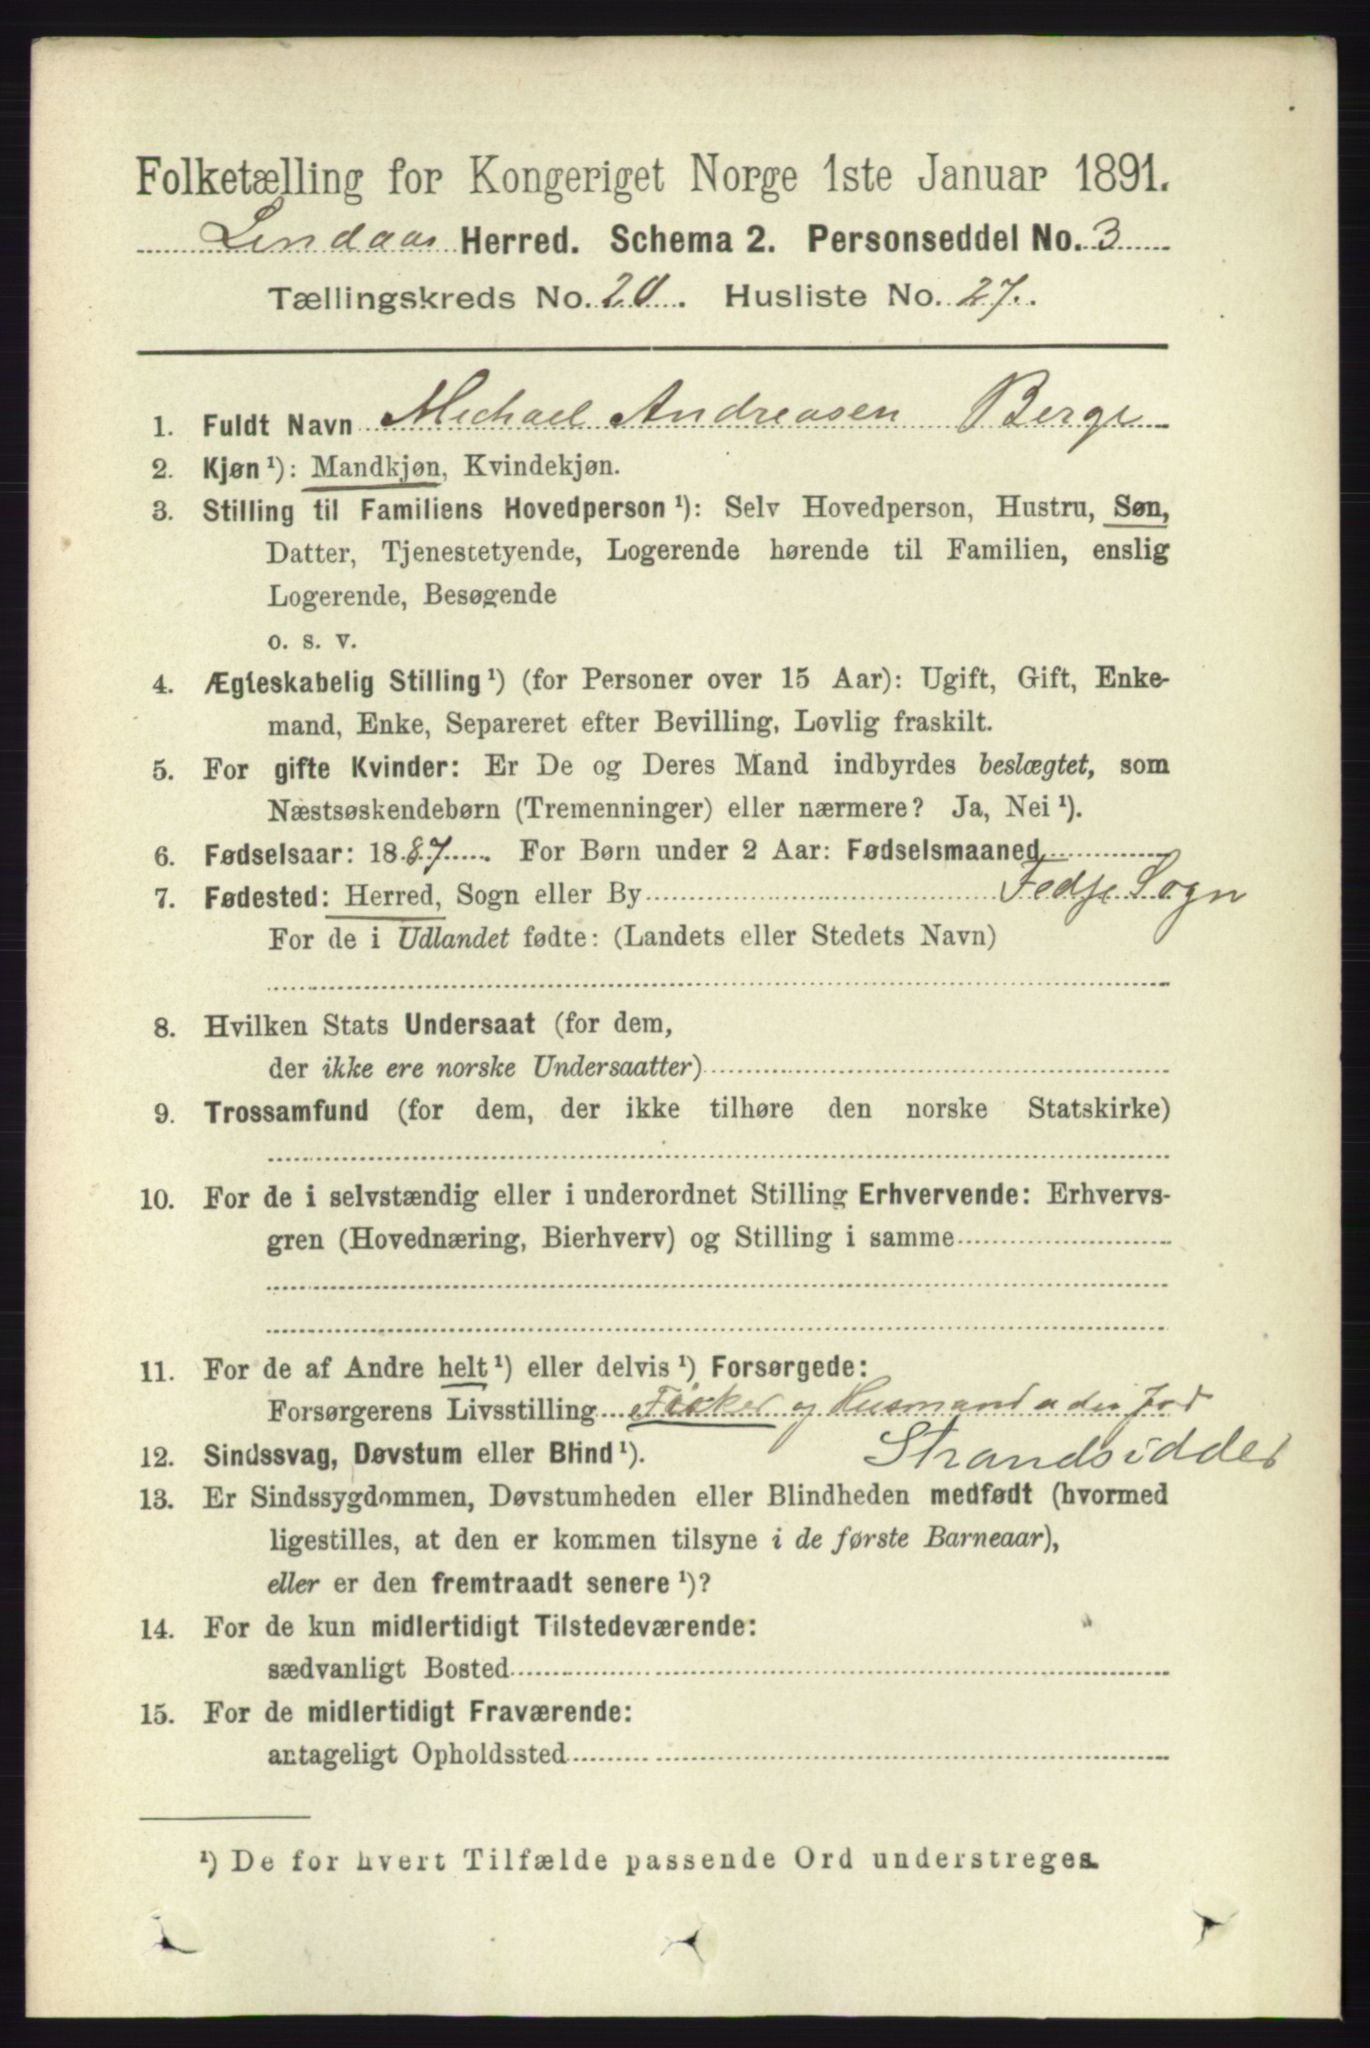 Folketælling for Kongeriget Norge 1ste Januar 1891.
Lindaas Herred. Schema 2. Personseddel No. 3
Tællingskreds No. 20. Husliste No. 27.
1. Fuldt Navn Michael Andreasen Berge
2. Kjøn¹): Mandkjøn, Kvindekjøn.
3. Stilling til Familiens Hovedperson¹): Selv Hovedperson, Hustru, Søn,
Datter, Tjenestetyende, Logerende hørende til Familien, enslig
Logerende, Besøgende
o. s. v.
4. Ægteskabelig Stilling¹) (for Personer over 15 Aar): Ugift, Gift, Enke-
mand, Enke, Separeret efter Bevilling, Lovlig fraskilt.
5. For gifte Kvinder: Er De og Deres Mand indbyrdes beslægtet, som
Næstsøskendebørn (Tremenninger) eller nærmere? Ja, Nei¹).
6. Fødselsaar: 1887. For Børn under 2 Aar: Fødselsmaaned
7. Fødested: Herred, Sogn eller By Fedje Sogn
For de i Udlandet fødte: (Landets eller Stedets Navn)
8. Hvilken Stats Undersaat (for dem,
der ikke ere norske Undersaatter)
9. Trossamfund (for dem, der ikke tilhøre den norske Statskirke)
10. For de i selvstændig eller i underordnet Stilling Erhvervende: Erhvervs-
gren (Hovednæring, Bierhverv) og Stilling i samme
11. For de af Andre helt¹) eller delvis¹) Forsørgede:
Forsørgerens Livsstilling Fisker og Husmand Jord
Strandsidder
12. Sindssvag, Døvstum eller Blind¹).
13. Er Sindssygdommen, Døvstumheden eller Blindheden medfødt (hvormed
ligestilles, at den er kommen tilsyne i de første Barneaar),
eller er den fremtraadt senere¹)?
14. For de kun midlertidigt Tilstedeværende:
sædvanligt Bosted
15. For de midlertidigt Fraværende:
antageligt Opholdssted
¹) De for hvert Tilfælde passende Ord understreges.